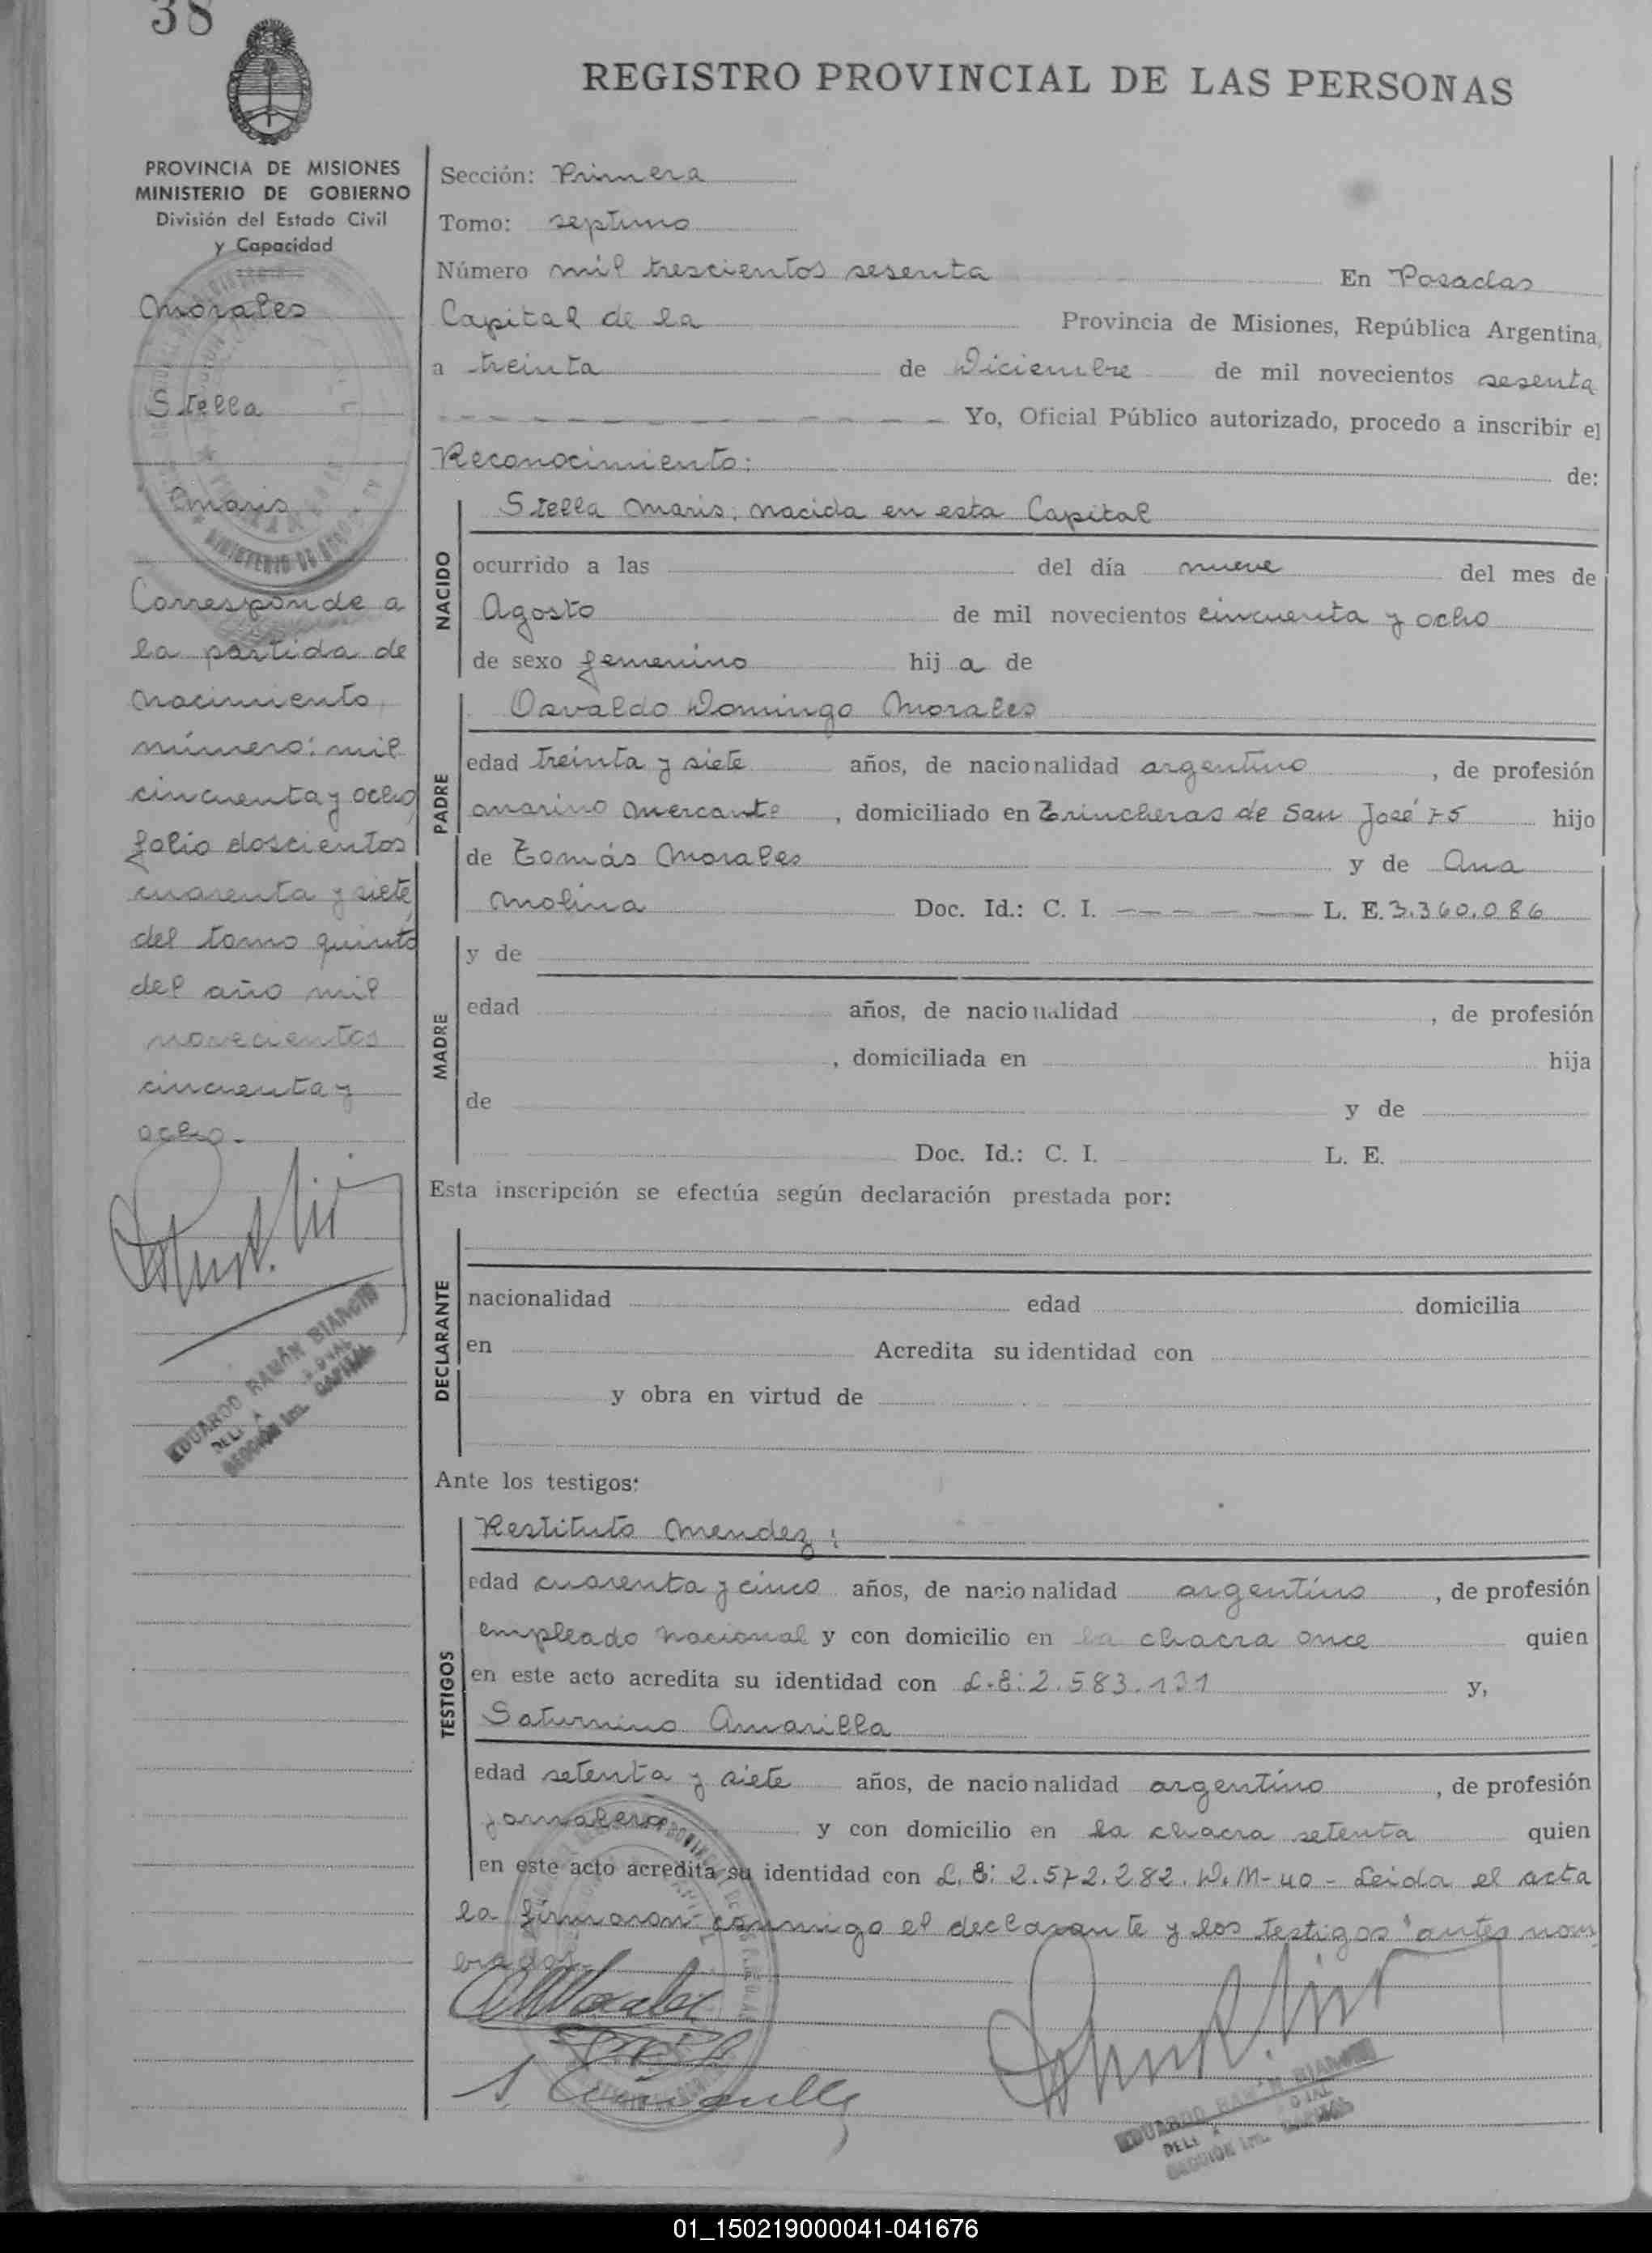 38
REGISTRO PROVINCIAL DE LAS PERSONAS
PROVINCIA DE MISIONES
MINISTERIO DE GOBIERNO
División del Estado Civil
y Capacidad
Morales
Stella
Maris
Corresponde a
la partida de
nacimiento
número: mil
cincuenta y ocho,
folio doscientos
cuarenta y siete,
del tomo quinto
del año mil
novecientos
cincuenta y
ocho.-
EDUARDO RAMÓN BIANCHI
SECCIÓN 1ra. CAPITAL
Sección: Primera
Tomo: septimo
Número mil trescientos sesenta En Posadas
Capital de la Provincia de Misiones, República Argentina,
a treinta de Diciembre de mil novecientos sesenta
Yo, Oficial Público autorizado, procedo a inscribir el
Reconocimiento: de:
NACIDO
Stella Maris, nacida en esta Capital
ocurrido a las del día nueve del mes de
Agosto de mil novecientos cincuenta y ocho
de sexo femenino hij a de
PADRE
Osvaldo Domingo Morales
edad treinta y siete años, de nacionalidad argentino, de profesión
marino mercante, domiciliado en Trincheras de San José 75 hijo
de Tomás Morales y de Ana
Molina Doc. Id.: C. I. — — — — L. E. 3.360.086
MADRE
y de
edad años, de nacionalidad , de profesión
, domiciliada en hija
de y de
Doc. Id.: C. I. L. E.
Esta inscripción se efectúa según declaración prestada por:
DECLARANTE
nacionalidad edad domicilia
en Acredita su identidad con
y obra en virtud de
Ante los testigos:
TESTIGOS
Restituto Mendez;
edad cuarenta y cinco años, de nacionalidad argentino, de profesión
empleado nacional y con domicilio en la chacra once quien
en este acto acredita su identidad con L.E: 2.583.131 y,
Saturnino Amarilla
edad setenta y siete años, de nacionalidad argentino, de profesión
jornalero y con domicilio en la chacra setenta quien
en este acto acredita su identidad con L.E: 2.572.282. D.M-40 - Leida el acta
la firmaron conmigo el declarante y los testigos antes nom
brados.-
EDUARDO RAMÓN BIANCHI
SECCIÓN 1ra. CAPITAL
01_150219000041-041676